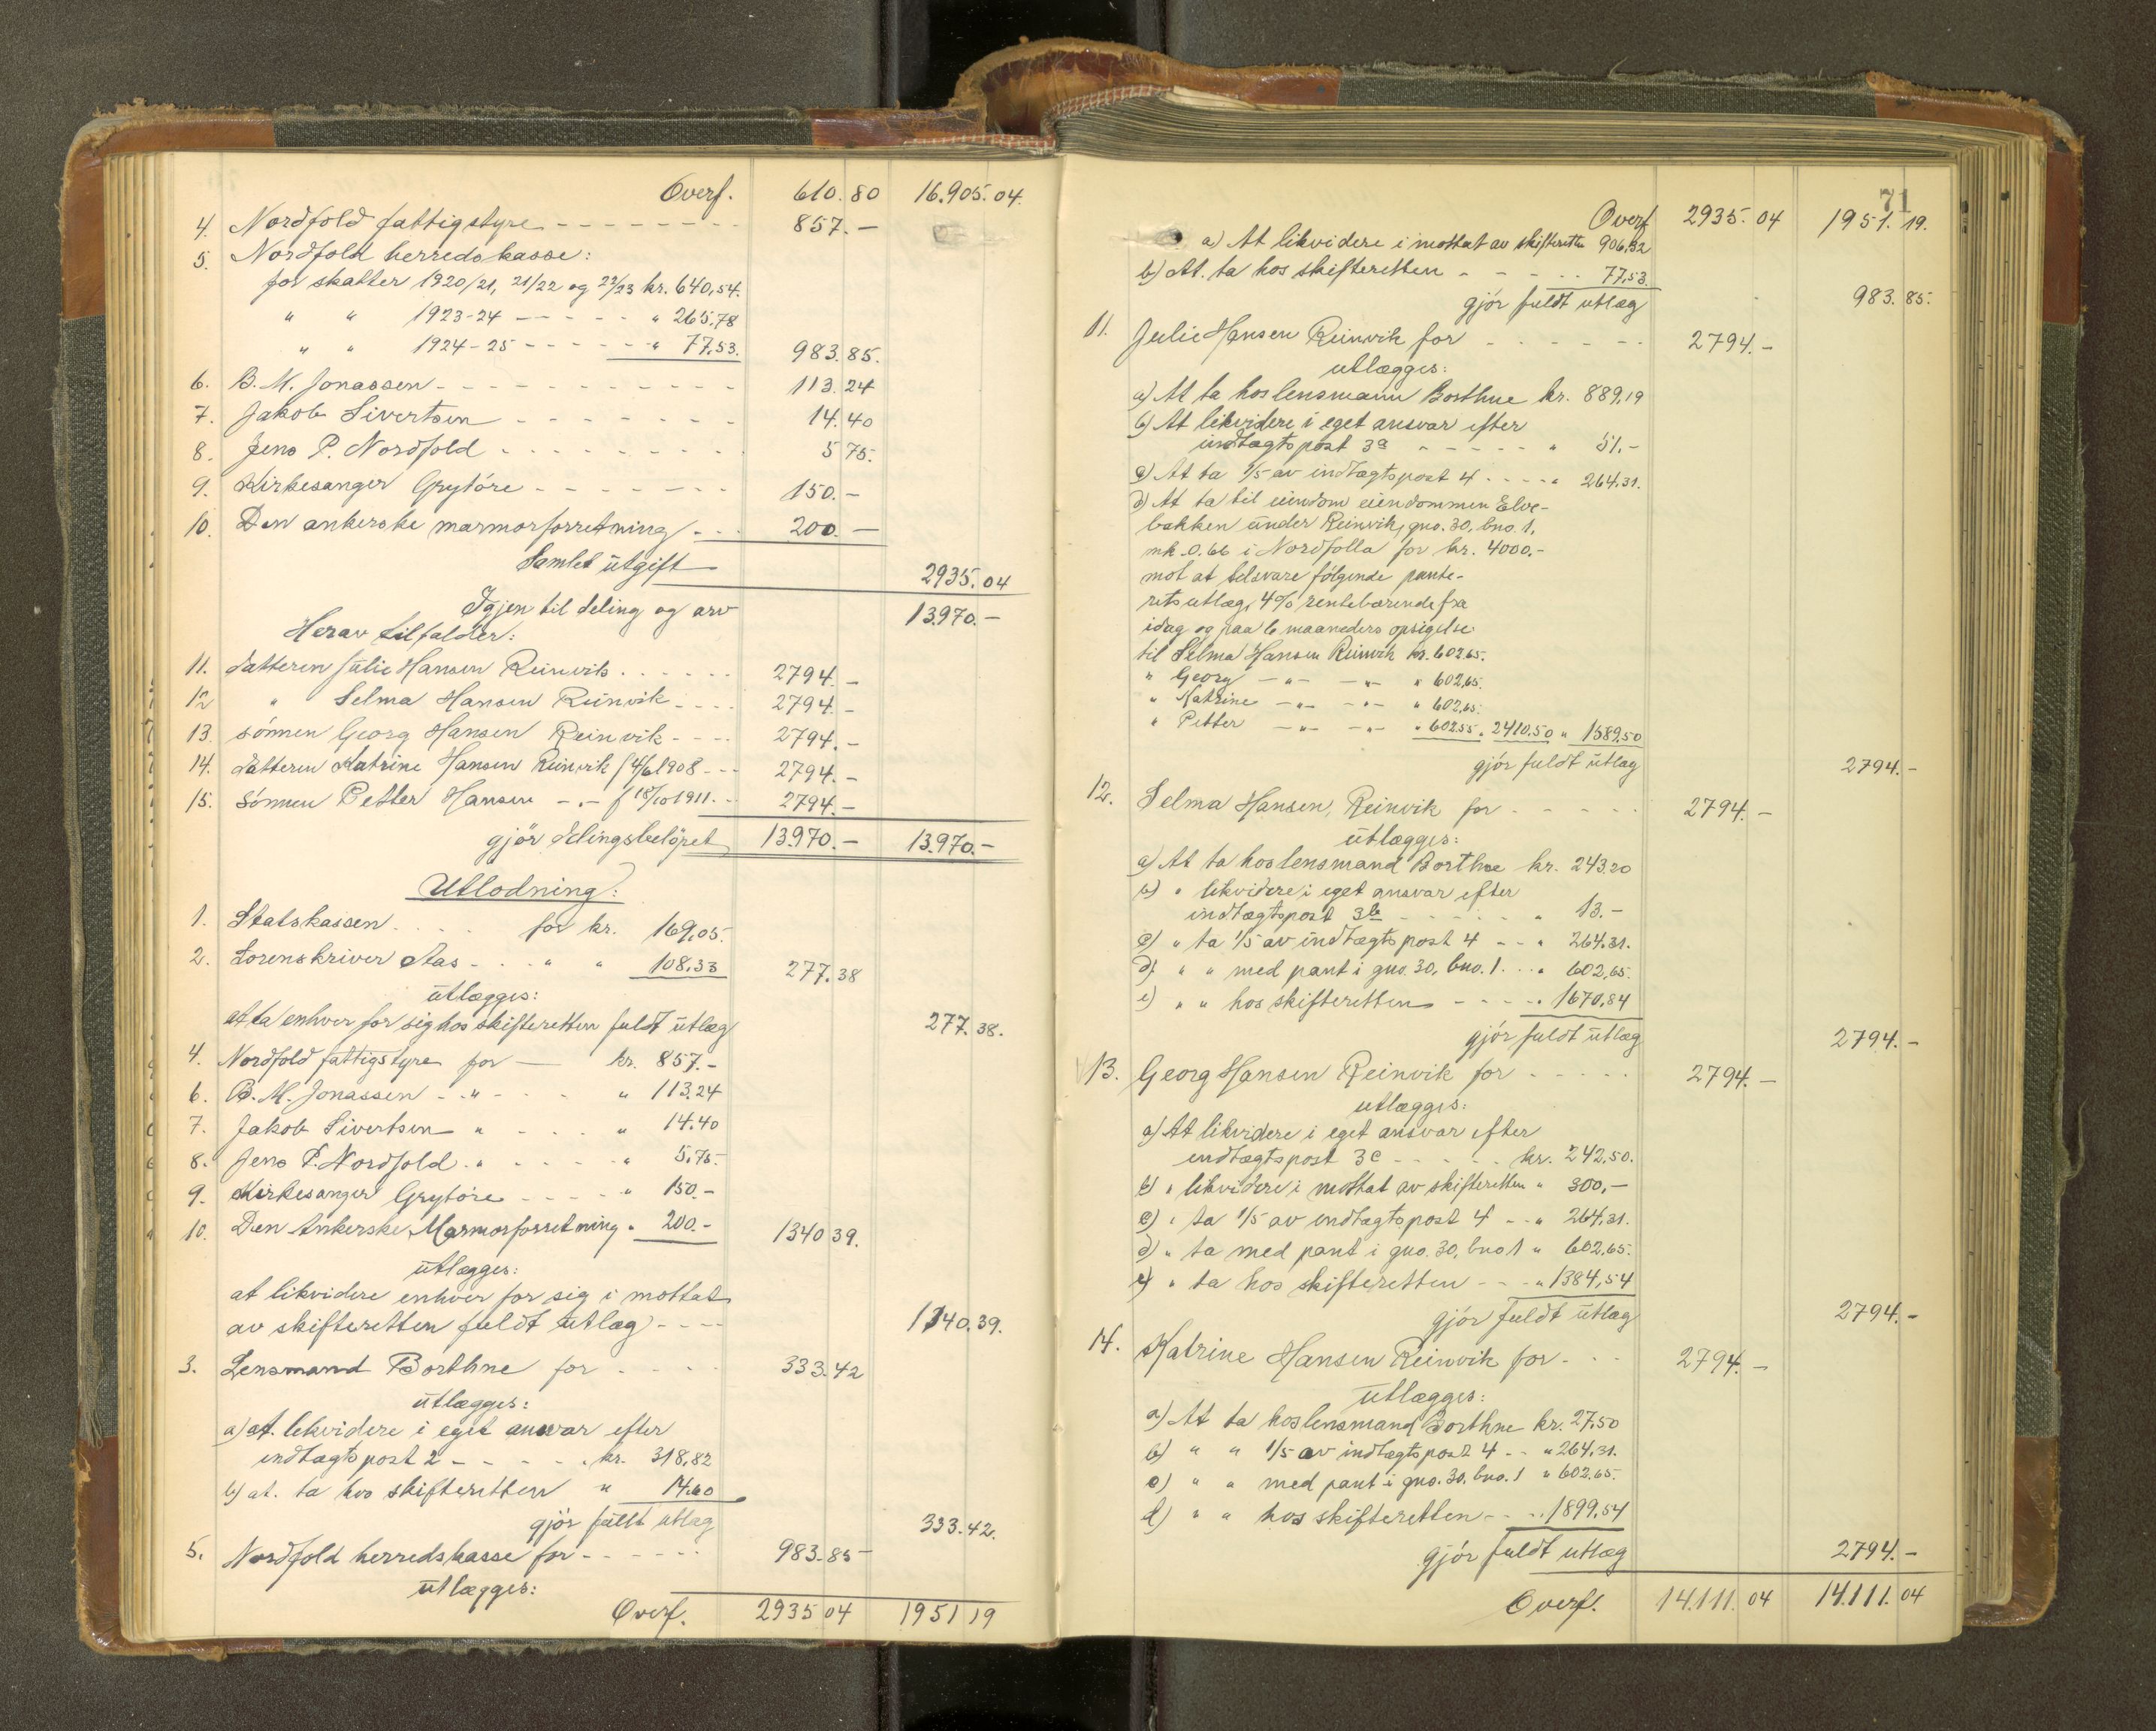 Overf. 610.80 16.905.04.
4. Nordfold fattigstyre - - - - - - - - 857.-
5. Nordfold herredskasse:
for skatter 1920/21, 21/22 og 22/23 kr. 640,54.
" " 1923-24 - - - - - " 265.78
" " 1924-25 - - - - - " 77,53. 983.85.
6. B. M. Jonassen - - - - - - - - - - 113.24
7. Jakob Sivertsen - - - - - - - 14.40
8. Jens P. Nordfold - - - - - - - - 5 75.
9. Kirkesanger Grytöre - - - - - - - 150.-
10. Den ankerske marmorforretning - - - 200.-
Samlet utgift 2935.04
Igjen til deling og arv 13.970.-
Herav tilfalder:
11. datteren Julie Hansen Reinvik - - - - - - 2794.-
12 " Selma Hansen Reinvik - - - - 2794.-
13. sönnen Georg Hansen Reinvik - - - - 2794.-
14. datteren Katrine Hansen Reinvik f 4/6 1908 - - - 2794.-
15. sönnen Petter Hansen - " - f 18/10 1911. - - 2794.-
gjör delingsbelöpet 13.970.- 13.970.-
Utlodning:
1. Statskassen - - - - for kr. 169,05.
2. Sorenskriver Aas - - - " " 108,33 277.38
utlægges:
at ta enhver for sig hos skifteretten fuldt utlæg 277.38.
4. Nordfold fattigstyre for — kr. 857.-
6. B. M. Jonassen - " - - - " 113.24
7. Jakob Sivertsen " - - - - " 14.40
8. Jens P. Nordfold " - - - - - " 5.75.
9. Kirkesanger Grytöre - - - - - " 150.-
10. Den Ankerske Marmorforretning " 200.- 1340 39.
utlægges:
at likvidere enhver for sig i mottat
av skifteretten fuldt utlæg - - - - 1340.39.
3. Lensmand Borthne for - - - - 333.42
utlægges:
a) at likvidere i eget ansvar efter
indtægtspost 2 - - - - - - kr. 318,82
b) at ta hos skifteretten " 14.60
gjör fuldt utlæg 333.42.
5. Nordfold herredskasse for - - - - - - 983.85
utlægges:
Overf. 2935 04 1951 19
71
Overf 2935.04 1951.19.
a) At likvidere i mottat av skifteretten 906,32
b) At ta hos skifteretten - - - - - 77,53.
gjör fuldt utlæg 983.85.
11. Julie Hansen Reinvik for - - - - - - 2794.-
utlægges:
a) At ta hos lensmann Borthne kr. 889,19
b) At likvidere i eget ansvar efter
indtægtspost 3a - - - - - " 51.-
c) At ta 1/5 av indtægtspost 4 - - - - " 264.31.
d) At ta til eiendom eiendommen Elve-
bakken under Reinvik, gno. 30, bno. 1,
mk 0.66 i Nordfolla for kr. 4000.-
mot at tilsvare følgende pante-
retsutlæg, 4% rentebærende fra
idag og paa 6 maaneders opsigelse
til Selma Hansen Reinvik kr. 602.65.
" Georg - " - - " - " 602,65.
" Katrine - " - - " - " 602,65.
" Petter - " - - " - " 602.55 " 2410.50 " 1589,50
gjör fuldt utlæg 2794.-
12. Selma Hansen Reinvik for - - - - - 2794.-
utlægges:
a) At ta hos lensmand Borthne kr. 243.20
b) " likvidere i eget ansvar efter
indtægtspost 3b - - - - - " 13.-
c) " ta 1/5 av indtægtspost 4 - - " 264.31.
d) " " med pant i gno. 30, bno. 1 . . . " 602,65.
e) " " hos skifteretten - - - - " 1670,84
gjör fuldt utlæg 2794.-
13. Georg Hansen Reinvik for - - - - - 2794.-
utlægges:
a) At likvidere i eget ansvar efter
indtægtspost 3c - - - - - kr. 242,50.
b) " likvidere i mottat av skifteretten " 300,-
c) " ta 1/5 av indtægtspost 4 - - " 264,31.
d) " ta med pant i gno. 30, bno 1 " 602,65.
e) " ta hos skifteretten - - - " 1384,54
gjör fuldt utlæg 2794.-
14. Katrine Hansen Reinvik for - - - 2794.-
utlægges:
a) At ta hos lensmand Borthne kr. 27,50
b) " " 1/5 av indtægtspost 4 - - " 264,31.
c) " " med pant i gno. 30, bno. 1 " 602.65.
d) " " hos skifteretten - - - " 1899,54
gjör fuldt utlæg 2794.-
Overf. 14.111.04 14.111.04